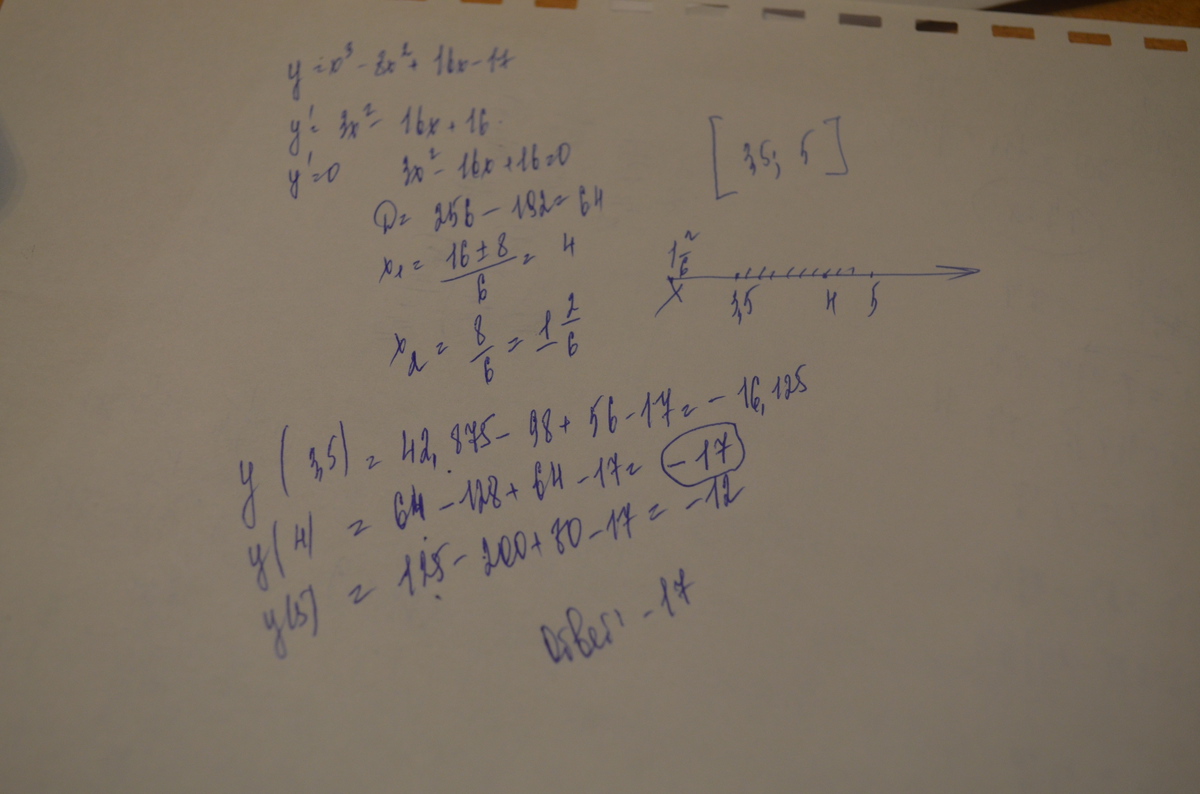 y = x³ - 8x² + 16x - 17
y' = 3x² - 16x + 16
y' = 0 3x² - 16x + 16 = 0
[3,5; 5]
D = 256 - 192 = 64
x₁ = (16 ± 8)/6 = 4
x₂ = 8/6 = 1 2/6
1 2/6
3,5 4 5
y(3,5) = 42,875 - 98 + 56 - 17 = -16,125
y(4) = 64 - 128 + 64 - 17 = -17
y(5) = 125 - 200 + 80 - 17 = -12
Ответ: -17